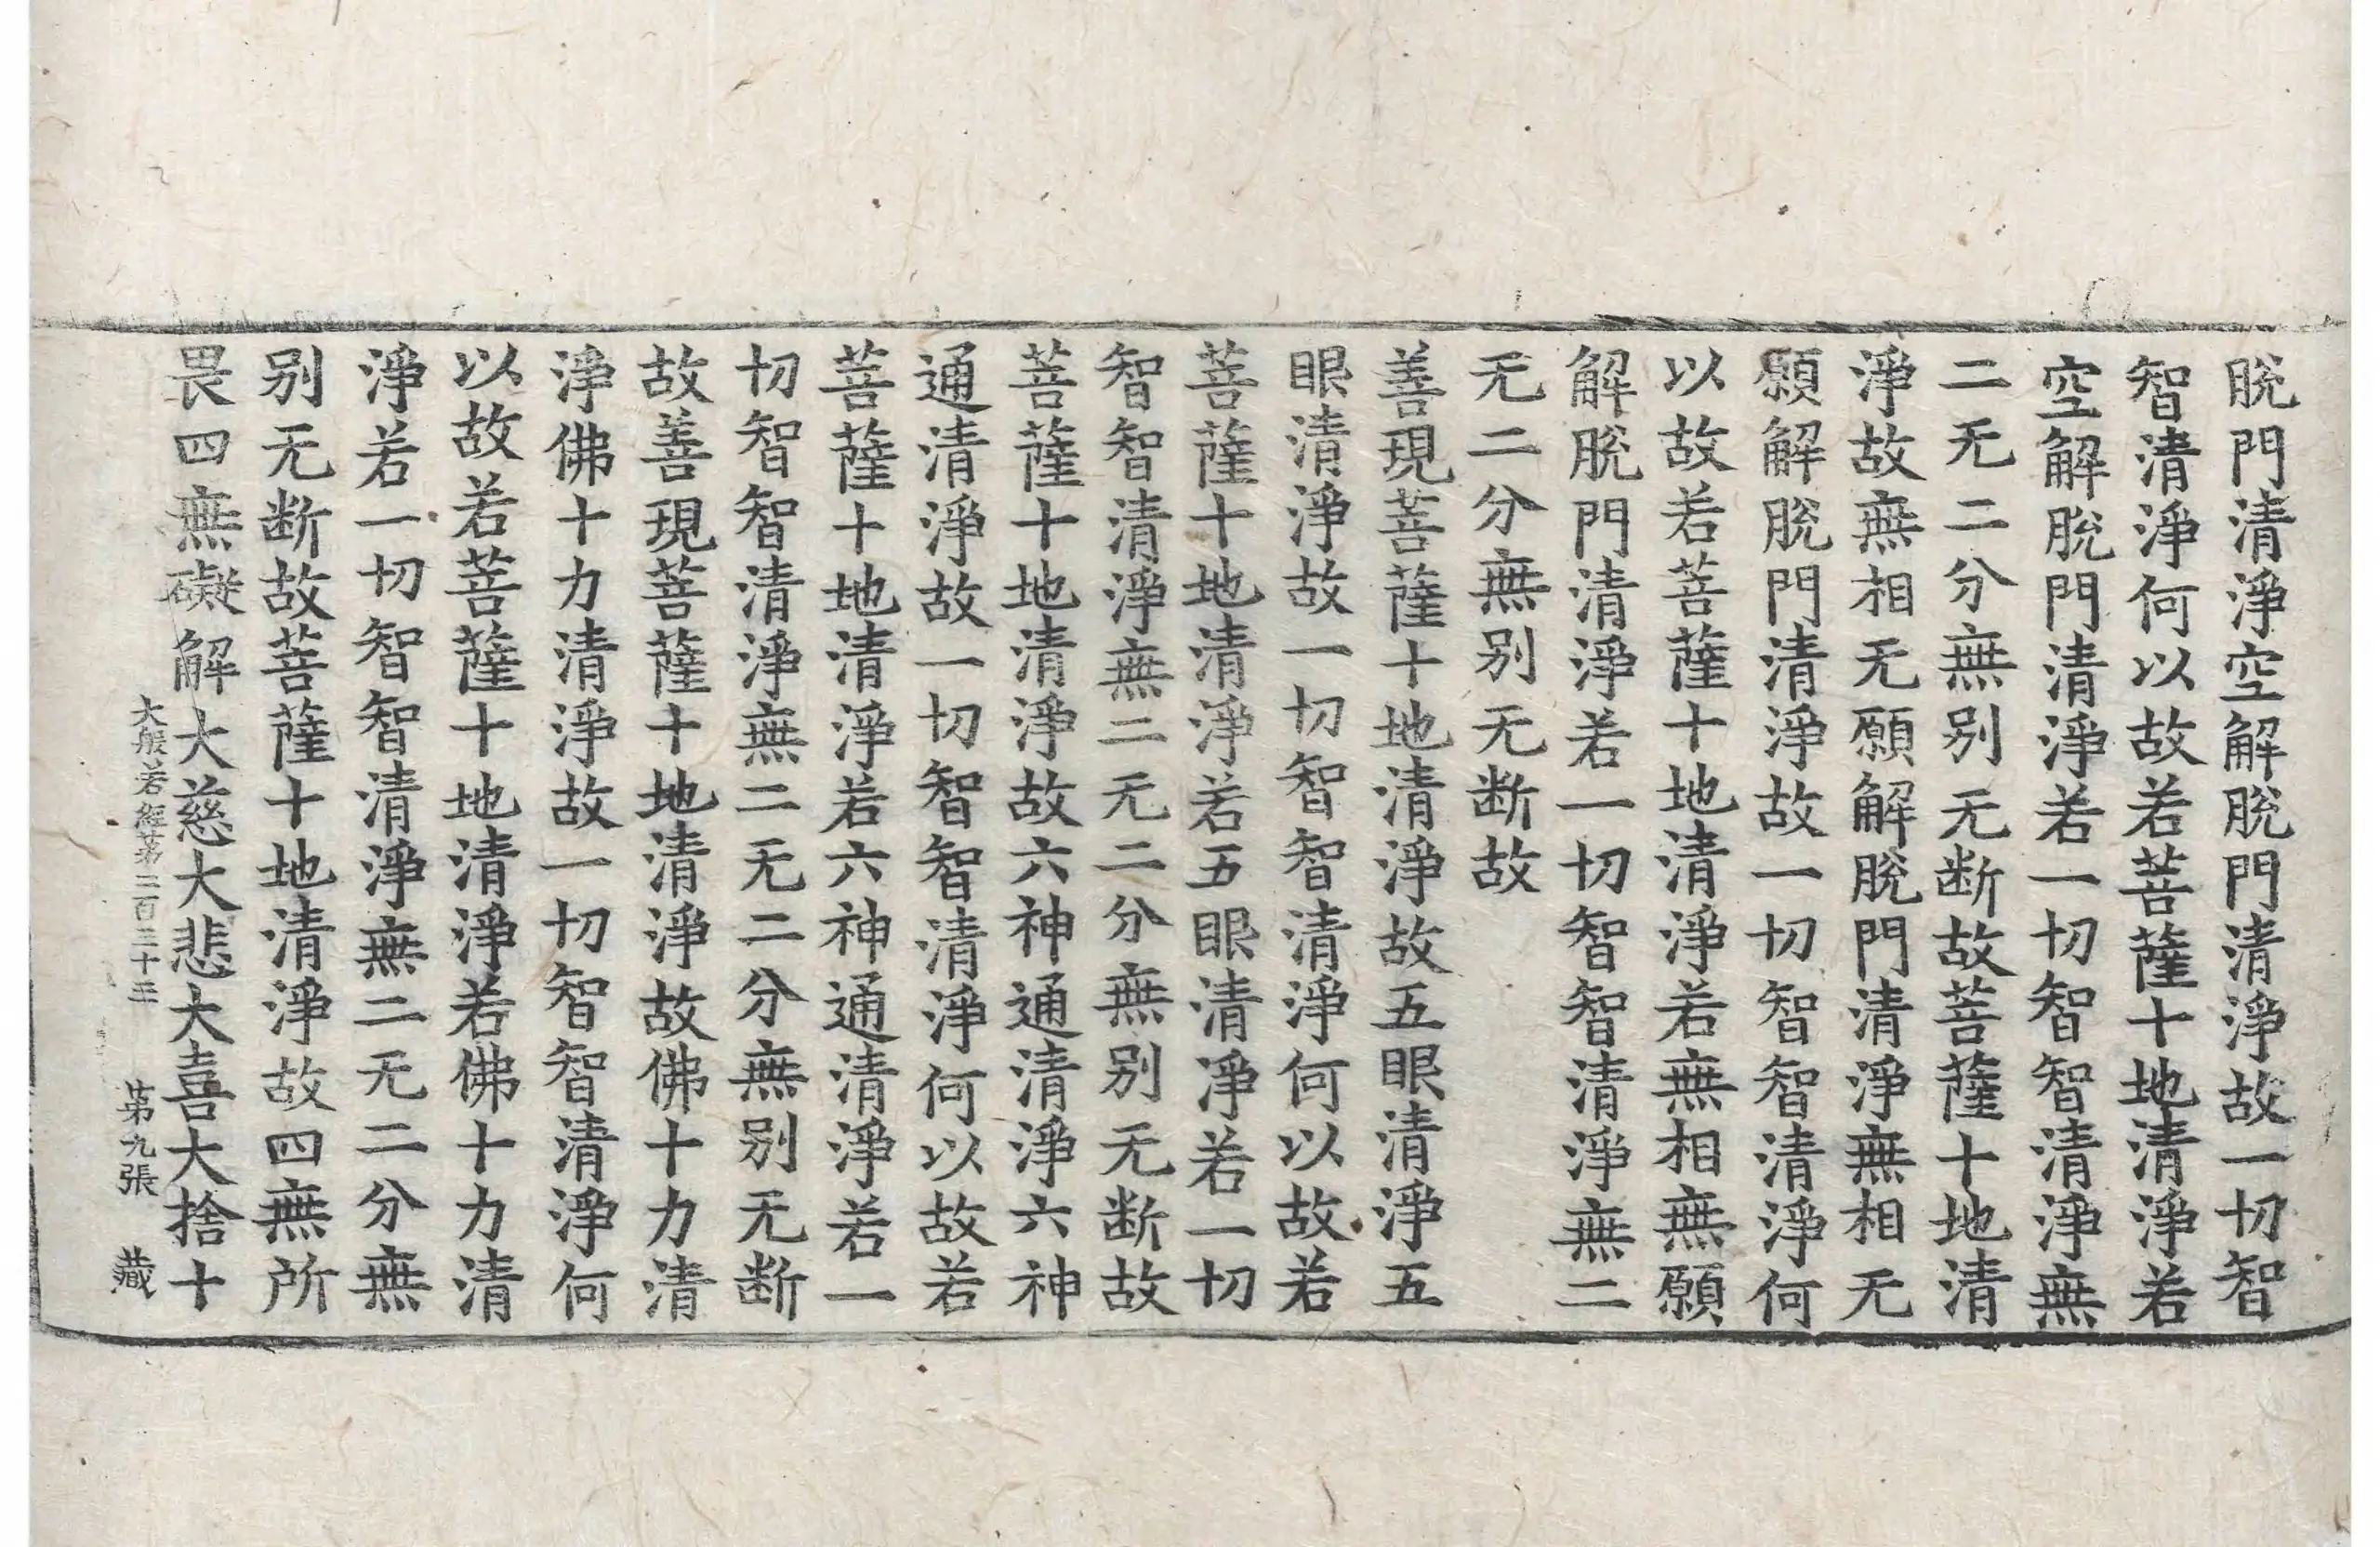 脫門清淨空解脫門清淨故一切智
智清淨何以故若菩薩十地清淨若
空解脫門清淨若一切智智清淨無
二无二分無别无断故菩薩十地清
淨故無相无願解脫門清淨無相无
願解脫門清淨故一切智智清淨何
以故若菩薩十地清淨若無相無願
解脫門清淨若一切智智清淨無二
无二分無别无断故
善現菩薩十地清淨故五眼清淨五
眼清淨故一切智智清淨何以故若
菩薩十地清淨若五眼清淨若一切
智智清淨無二无二分無别无断故
菩薩十地清淨故六神通清淨六神
通清淨故一切智智清淨何以故若
菩薩十地清淨若六神通清淨若一
切智智清淨無二无二分無别无断
故善現菩薩十地清淨故佛十力清
淨佛十力清淨故一切智智清淨何
以故若菩薩十地清淨若佛十力清
淨若一切智智清淨無二无二分無
别无断故菩薩十地清淨故四無所
畏四無礙解大慈大悲大喜大捨十
大般若經第二百三十三 第九張 藏